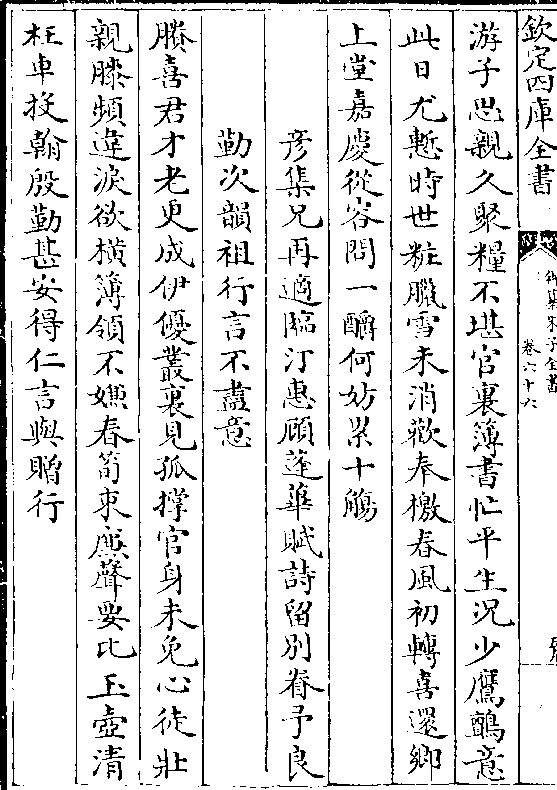 欽定四庫全書
御纂朱子全書
卷六十六
游子思親久聚糧不堪官裏簿書忙平生況少鷹鸇意
此日尤慙時世粧臘雪未消歡奉檄春風初轉喜還鄉
上堂嘉慶從容問一釂何妨累十觴
彦集兄再適臨汀惠顧蓬蓽賦詩留别眷予良
勤次韻祖行言不盡意
勝喜君才老更成伊優叢裏見孤撑官身未免心徒壯
親膝頻違淚欲横簿領不嫌春筍束廉聲要比玉壺清
枉車投翰殷勤甚安得仁言與贈行